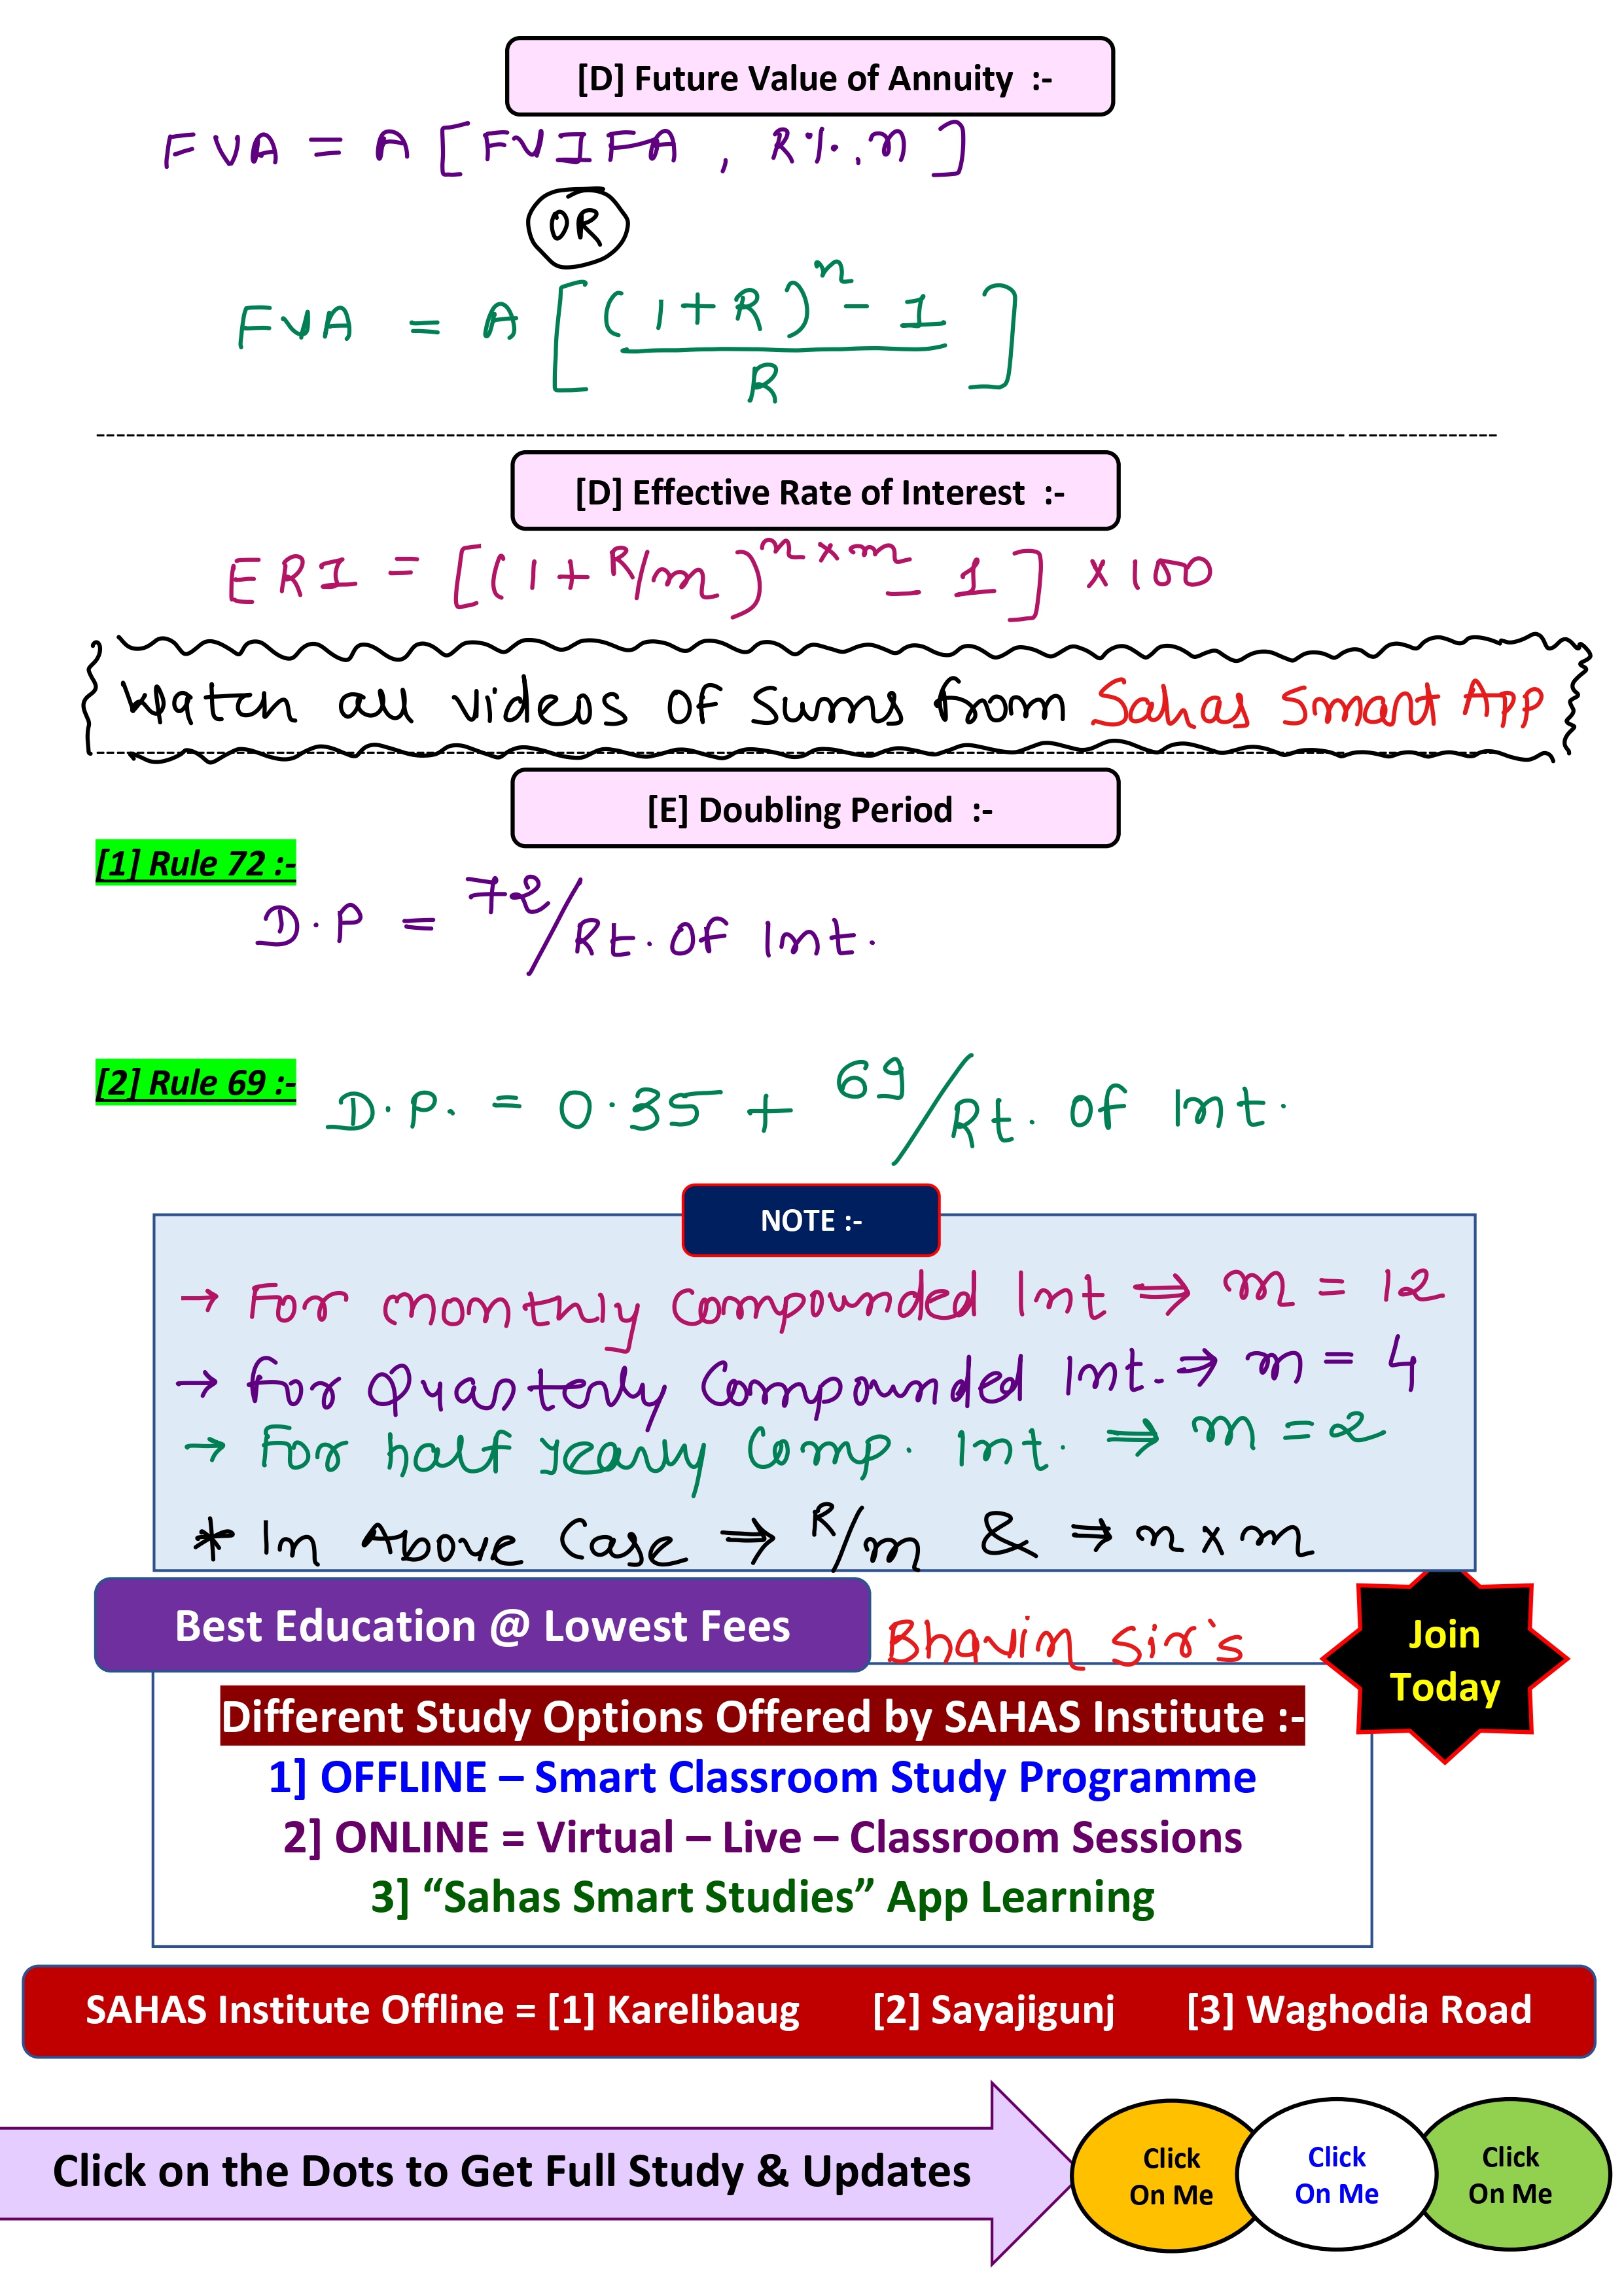 [D] Future Value of Annuity :-
FVA = A [FVIFA , R%, n]
OR
FVA = A [ (1+R)^n - 1 / R ]
[D] Effective Rate of Interest :-
ERI = [(1 + R/m)^n×m - 1] × 100
Watch all videos of sums from Sahas Smart App
[E] Doubling Period :-
[1] Rule 72 :-
D.P = 72/Rt. of Int.
[2] Rule 69 :- D.P. = 0.35 + 69/Rt. of Int.
NOTE :-
→ For monthly compounded Int ⇒ m = 12
→ for Quarterly Compounded Int. ⇒ m = 4
→ For half yearly Comp. Int. ⇒ m = 2
* In Above Case ⇒ R/m & ⇒ n × m
Best Education @ Lowest Fees
Bhavin Sir's
Join
Today
Different Study Options Offered by SAHAS Institute :-
1] OFFLINE – Smart Classroom Study Programme
2] ONLINE = Virtual – Live – Classroom Sessions
3] “Sahas Smart Studies” App Learning
SAHAS Institute Offline = [1] Karelibaug [2] Sayajigunj [3] Waghodia Road
Click on the Dots to Get Full Study & Updates
Click
On Me
Click
On Me
Click
On Me